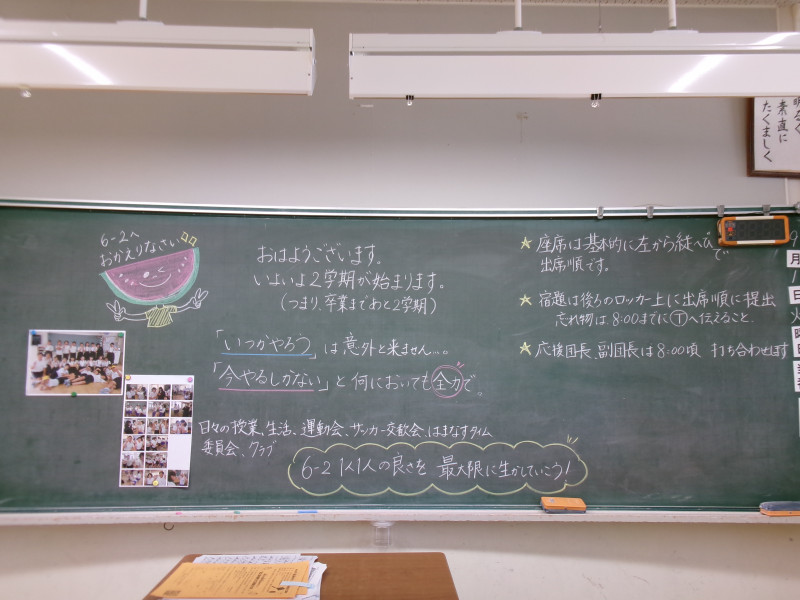 6-2へ
おかえりなさい
おはようございます。
いよいよ2学期が始まります。
(つまり、卒業まであと2学期)
「いつかやろう」は意外と来ません…。
「今やるしかない」と何においても全力で。
日々の授業、生活、運動会、サッカー交歓会、はまなすタイム
委員会、クラブ
6-2 1人1人の良さを 最大限に生かしていこう!
★座席は基本的に左から縦へびで
出席順です。
★宿題は後ろのロッカー上に出席順に提出
忘れ物は、8:00までにⓉへ伝えること。
★応援団長、副団長は8:00頃 打ち合わせします
明るく
素直に
たくましく
9
月
1
日
火
曜
日